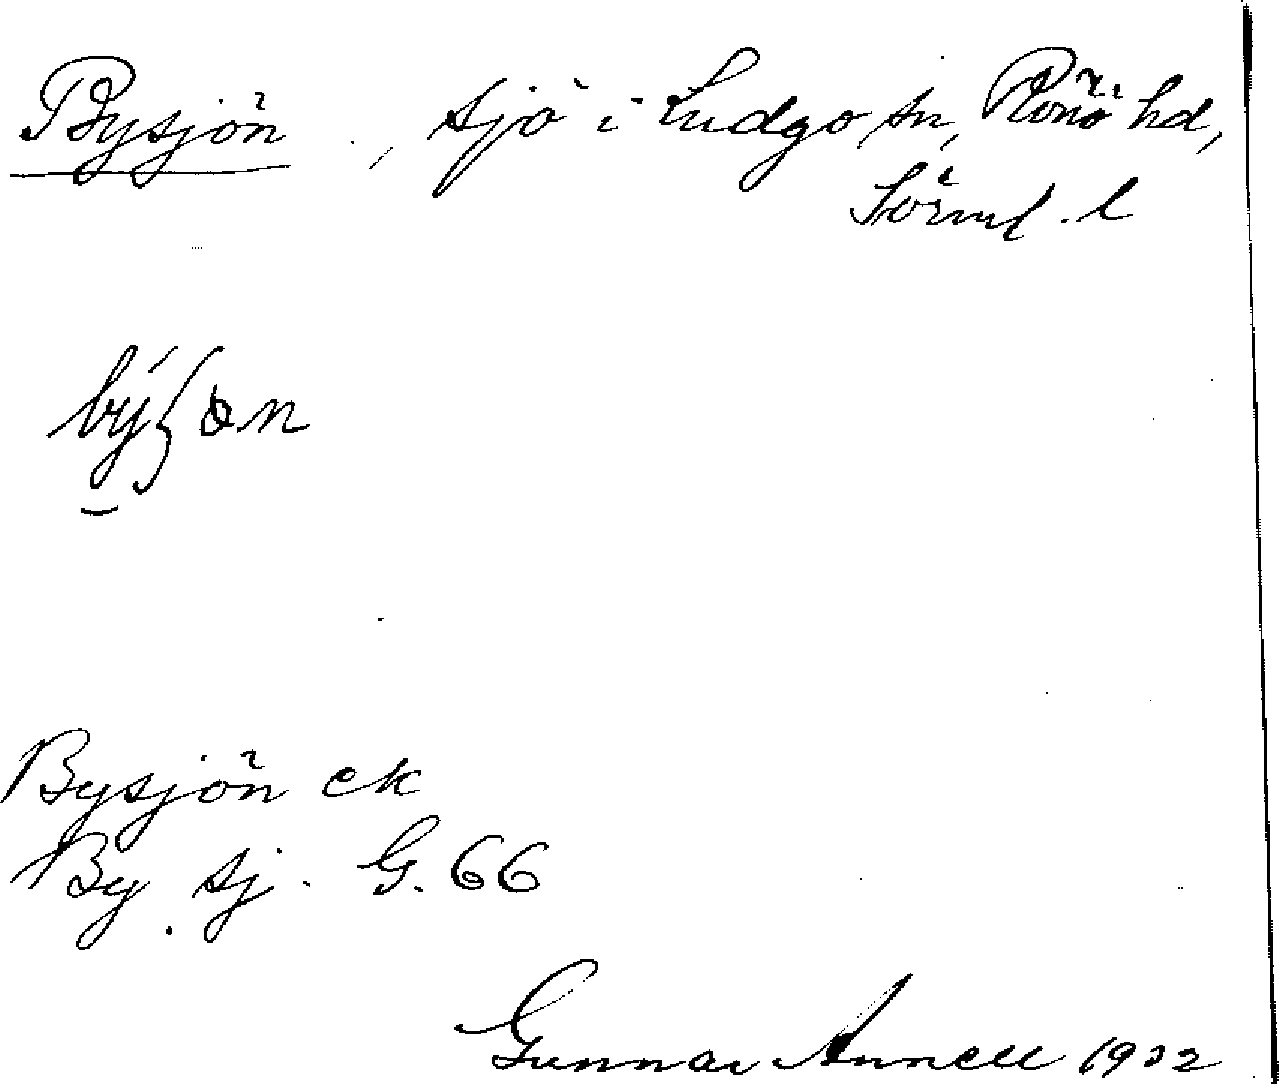 Bysjön, sjö i Ludgo sn, Rönö hd,
Sörml. l
Bysjön ek
By sj. G. 66
Gunnar Annell 1932